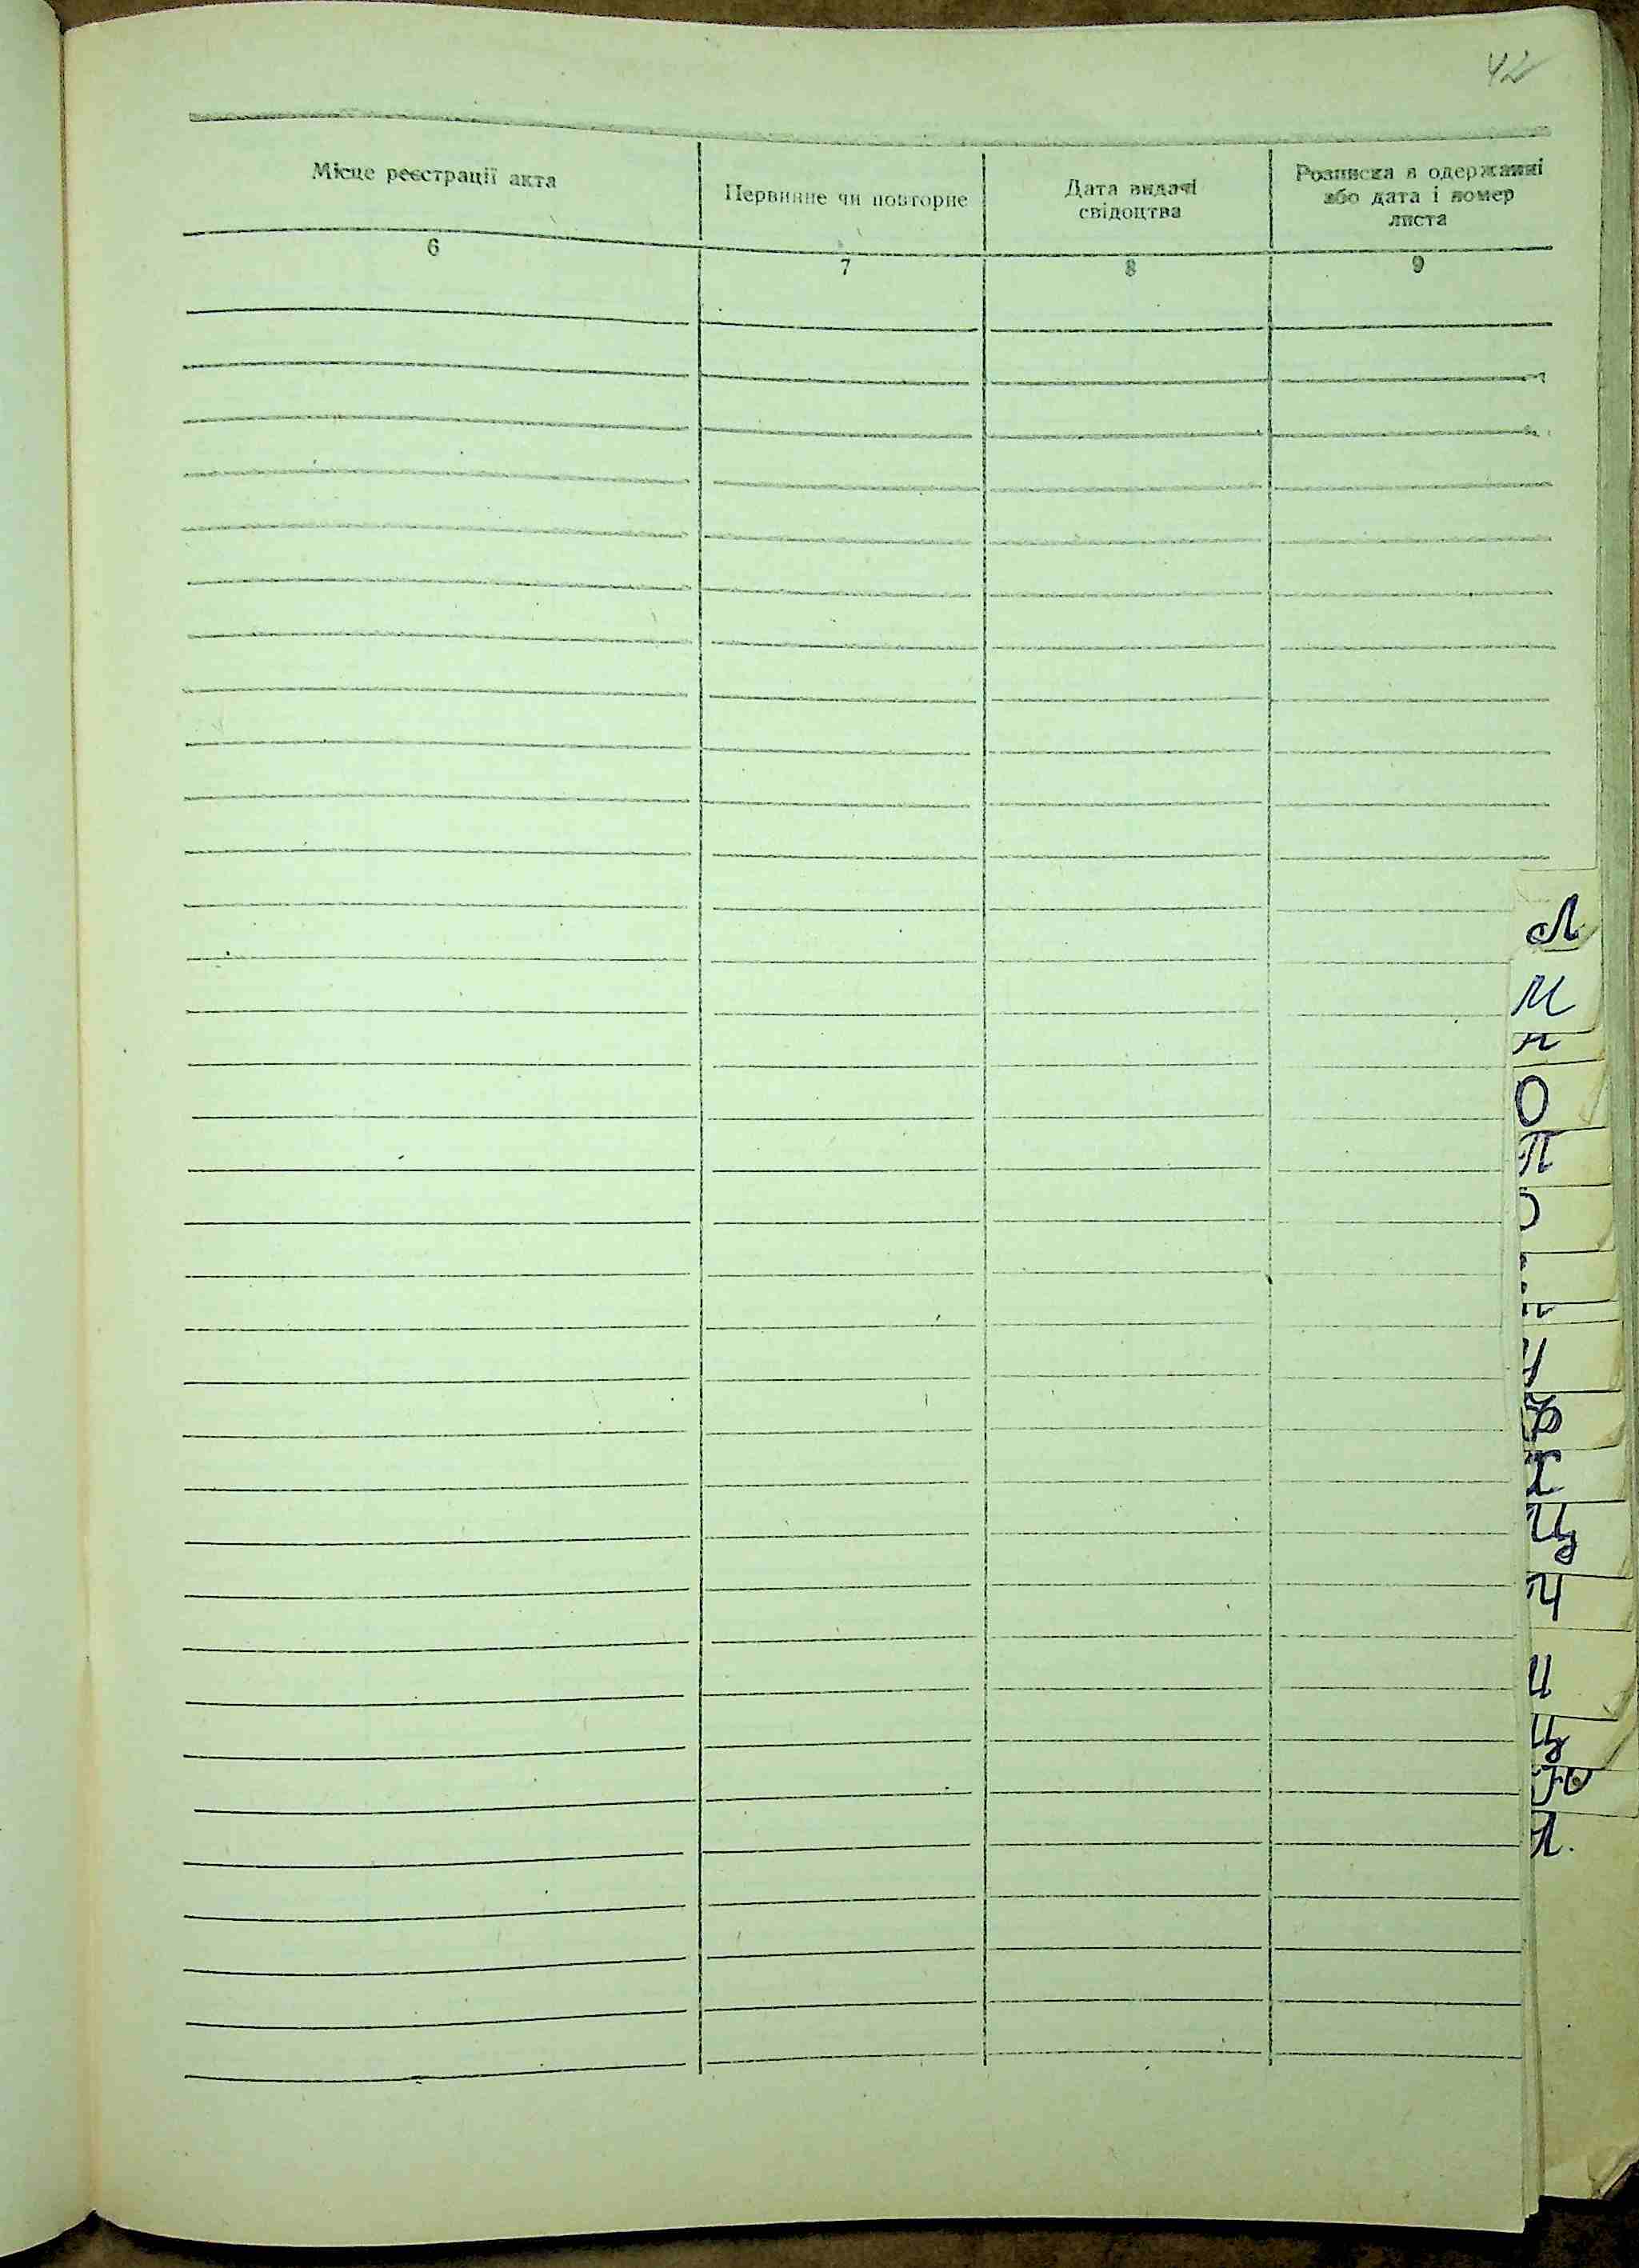 42
Місце реєстрації акта
Первинне чи повторне
Дата видачі
свідоцтва
Розписка в одержанні
або дата і номер
листа
6
7
8
9
Л
М
Н
О
П
Ф
Х
Ц
Ч
Щ
Ю
Я.